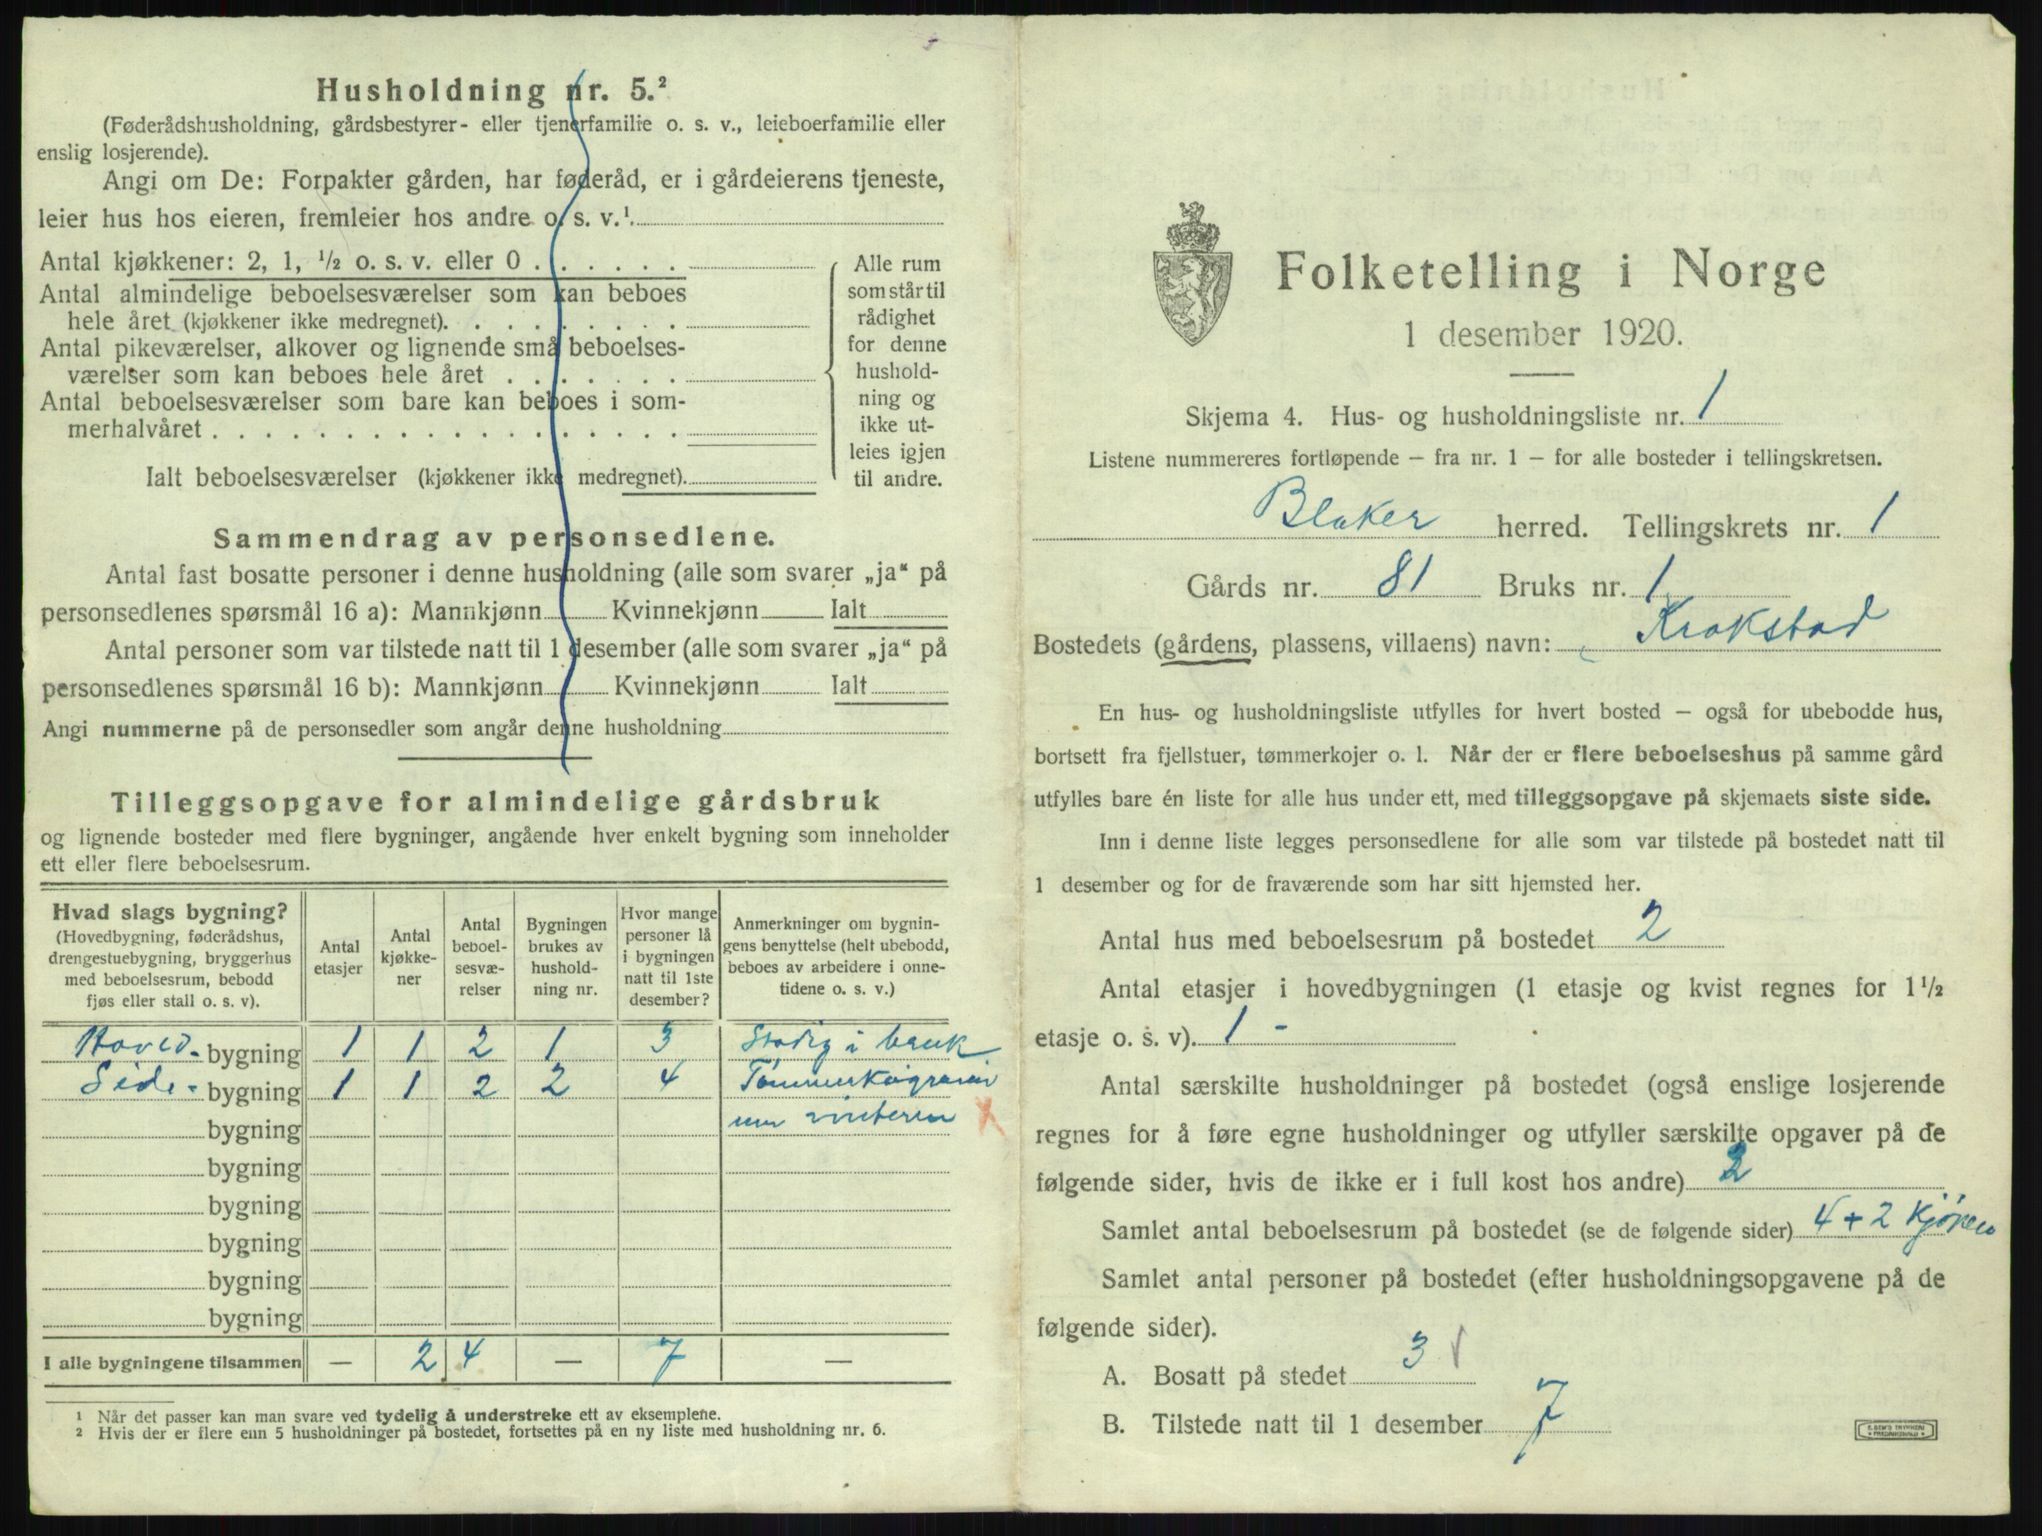 Husholdning nr. 5.²
(Føderådshusholdning, gårdsbestyrer- eller tjenerfamilie o. s. v., leieboerfamilie eller
enslig losjerende).
Angi om De: Forpakter gården, har føderåd, er i gårdeierens tjeneste,
leier hus hos eieren, fremleier hos andre o. s. v.¹
Antal kjøkkener: 2, 1, ½ o. s. v. eller 0 . . . . . .
Antal almindelige beboelsesværelser som kan beboes
hele året (kjøkkener ikke medregnet). . . . . . . . .
Antal pikeværelser, alkover og lignende små beboelses-
værelser som kan beboes hele året . . . . . . .
Antal beboelsesværelser som bare kan beboes i som-
merhalvåret . . . . . . . . . . . . . . . . . .
Ialt beboelsesværelser (kjøkkener ikke medregnet).
Alle rum
som står til
rådighet
for denne
hushold-
ning og
ikke ut-
leies igjen
til andre.
Sammendrag av personsedlene.
Antal fast bosatte personer i denne husholdning (alle som svarer „ja" på
personsedlenes spørsmål 16 a): Mannkjønn Kvinnekjønn Ialt
Antal personer som var tilstede natt til 1 desember (alle som svarer „ja" på
personsedlenes spørsmål 16 b): Mannkjønn Kvinnekjønn Ialt
Angi nummerne på de personsedler som angår denne husholdning
Tilleggsopgave for almindelige gårdsbruk
og lignende bosteder med flere bygninger, angående hver enkelt bygning som inneholder
ett eller flere beboelsesrum.
Hvad slags bygning?
(Hovedbygning, føderådshus,
drengestuebygning, bryggerhus
med beboelsesrum, bebodd
fjøs eller stall o. s. v).
Antal
etasjer
Antal
kjøkke-
ner
Antal
beboel-
sesvæ-
relser
Bygningen
brukes av
hushold-
ning nr.
Hvor mange
personer lå
i bygningen
natt til 1ste
desember?
Anmerkninger om bygnin-
gens benyttelse (helt ubebodd,
beboes av arbeidere i onne-
tidene o. s. v.)
Hoved- bygning 1 1 2 1 3 Stadig i bruk
Side- bygning 1 1 2 2 4
bygning vinteren x
bygning
bygning
bygning
bygning
bygning
I alle bygningene tilsammen — 2 4 — 7 —
¹ Når det passer kan man svare ved tydelig å understreke ett av eksemplene.
² Hvis der er flere enn 5 husholdninger på bostedet, fortsettes på en ny liste med husholdning nr. 6.
Folketelling i Norge
1 desember 1920.
Skjema 4. Hus- og husholdningsliste nr. 1
Listene nummereres fortløpende — fra nr. 1 — for alle bosteder i tellingskretsen.
Blaker herred. Tellingskrets nr. 1
Gårds nr. 81 Bruks nr. 1
Bostedets (gårdens, plassens, villaens) navn: Krokstad
En hus- og husholdningsliste utfylles for hvert bosted — også for ubebodde hus,
bortsett fra fjellstuer, tømmerkojer o. l. Når der er flere beboelseshus på samme gård
utfylles bare én liste for alle hus under ett, med tilleggsopgave på skjemaets siste side.
Inn i denne liste legges personsedlene for alle som var tilstede på bostedet natt til
1 desember og for de fraværende som har sitt hjemsted her.
Antal hus med beboelsesrum på bostedet 2
Antal etasjer i hovedbygningen (1 etasje og kvist regnes for 1½
etasje o. s. v). 1 -
Antal særskilte husholdninger på bostedet (også enslige losjerende
regnes for å føre egne husholdninger og utfyller særskilte opgaver på de
følgende sider, hvis de ikke er i full kost hos andre) 2
Samlet antal beboelsesrum på bostedet (se de følgende sider) 4 + 2
Samlet antal personer på bostedet (efter husholdningsopgavene på de
følgende sider).
A. Bosatt på stedet 3
B. Tilstede natt til 1 desember 7